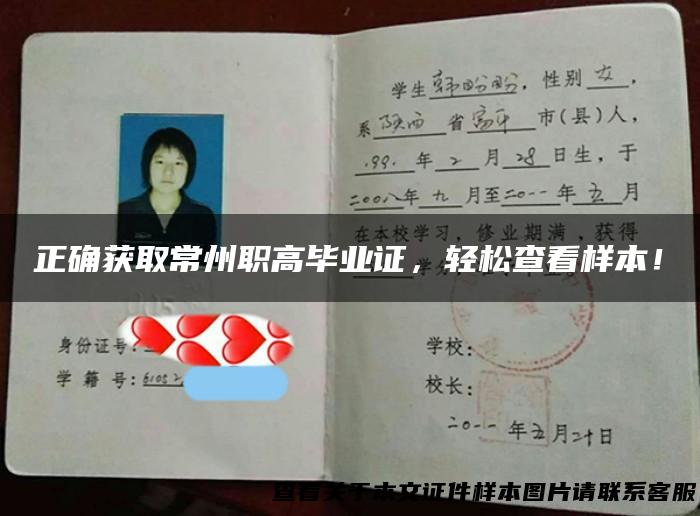 学生韩盼盼，性别女，
系陕西省富平市(县)人，
.99.年2月28日生，于
二00八年九月至二0一一年五月
在本校学习，修业期满，获得
正确获取常州职高毕业证，轻松查看样本！
学分
身份证号：
学籍号：61052
学校：
校长：
二0一一年五月二十日
查看关于本文证件样本图片请联系客服